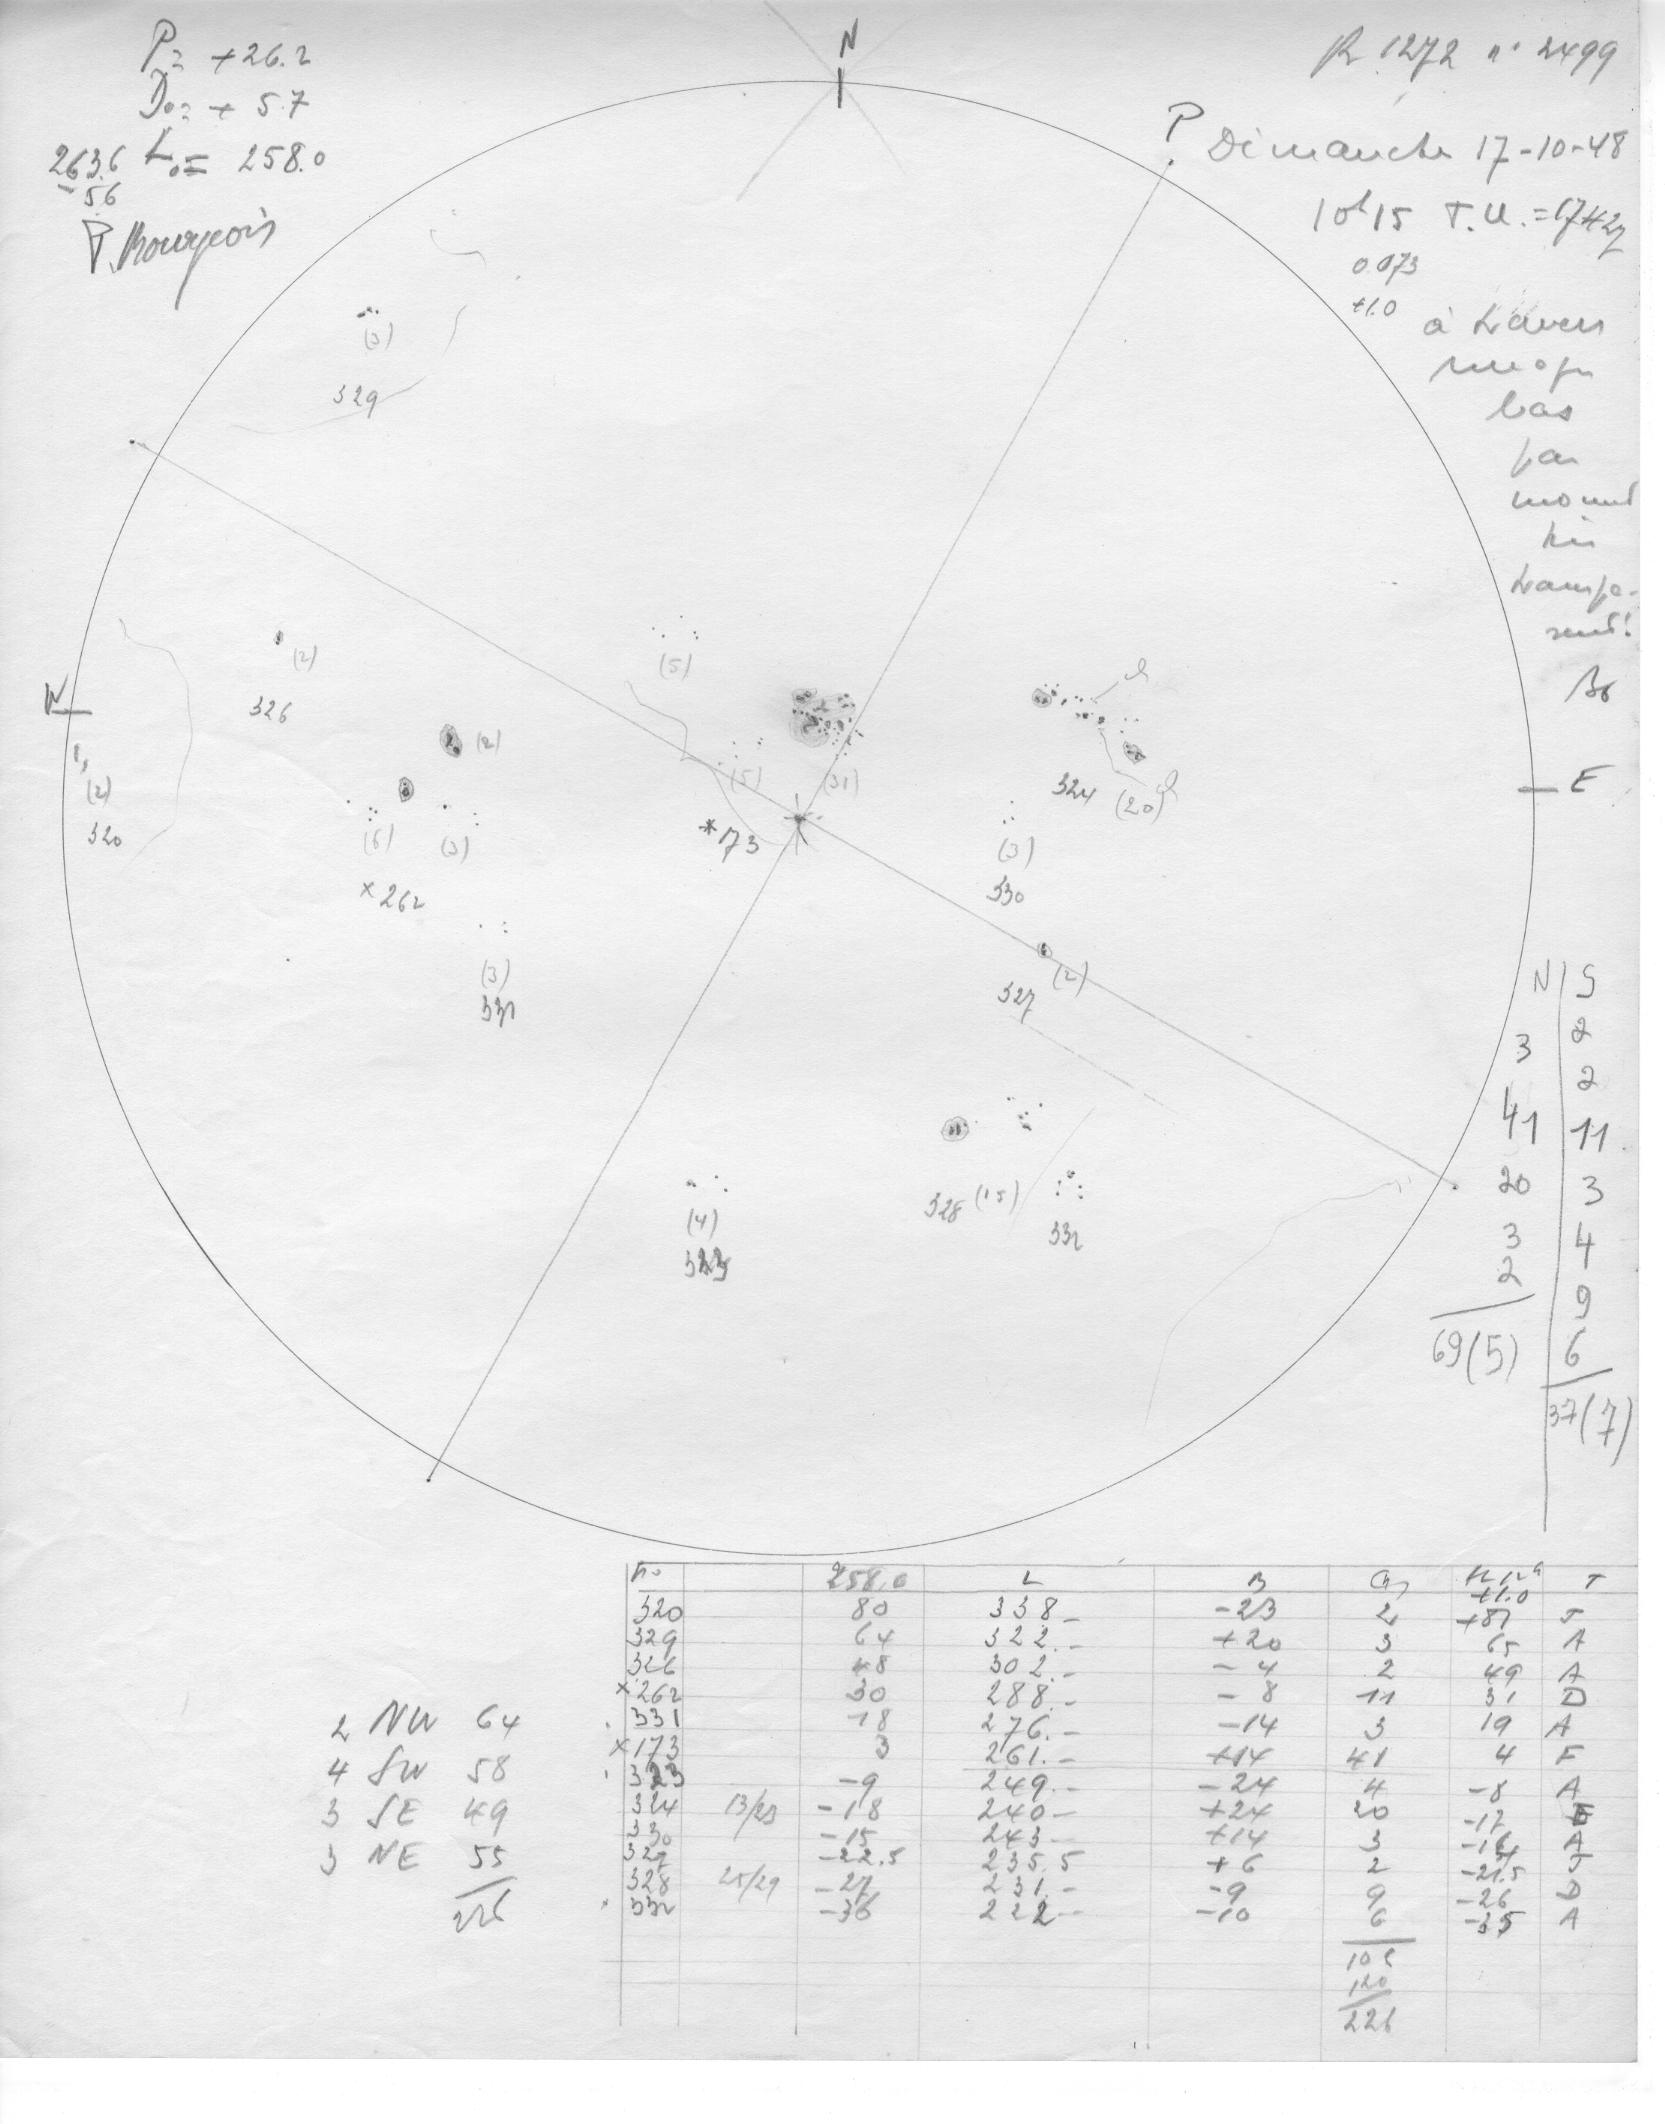 P= +26.2
D0= + 5.7
263.6 L0= 258.0
- 5.6
P. Bourgeois
N
P
R 1272 n° 2499
Dimanche 17-10-48
10h15 T.U. = 17.427
0.073
+1.0
à travers
nuages
bas
par
moment
très
transpa-
rent!
Bo
W
E
(3)
329
(2)
326
(2)
(2)
320
(6)
(3)
×262
(3)
331
(5)
(5)
(31)
*173
324
(20)
(3)
330
(2)
327
328 (15)
332
(4)
323
N | S
3 | 2
41 | 2
20 | 11
3 | 3
2 | 4
69(5) | 9
6
37(7)
n° 258.0 L B T
+1.0
320 80 338.- -23 2 +81 J
329 64 322.- +20 3 65 A
326 48 302.- -4 2 49 A
×262 30 288.- -8 11 31 D
331 18 276.- -14 3 19 A
×173 3 261.- +14 41 4 F
323 -9 249.- -24 4 -8 A
324 13/23 -18 240- +24 20 -17 E
330 -15 243- +14 3 -14 A
327 -22.5 235.5 +6 2 -21.5 J
328 25/29 -27 231.- -9 9 -26 D
332 -36 222- -10 6 -35 A
106
120
226
2 NW 64
4 SW 58
3 SE 49
3 NE 55
226